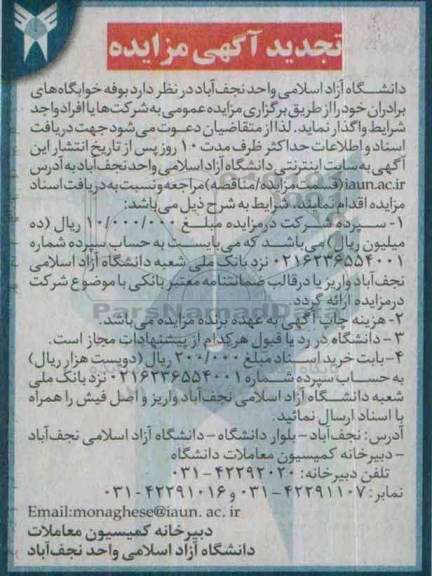 تجدید آگهی مزایده
دانشگاه آزاد اسلامی واحد نجف‌آباد در نظر دارد بوفه خوابگاه‌های
برادران خود را از طریق برگزاری مزایده عمومی به شرکت‌ها یا افراد واجد
شرایط واگذار نماید. لذا از متقاضیان دعوت می‌شود جهت دریافت
اسناد و اطلاعات حداکثر ظرف مدت ۱۰ روز پس از تاریخ انتشار این
آگهی به سایت اینترنتی دانشگاه آزاد اسلامی واحد نجف‌آباد به آدرس
iaun.ac.ir (قسمت مزایده/مناقصه) مراجعه و نسبت به دریافت اسناد
مزایده اقدام نمایند. شرایط به شرح ذیل می‌باشد:
۱- سپرده شرکت در مزایده مبلغ ۱۰/۰۰۰/۰۰۰ ریال (ده
میلیون ریال) می‌باشد که می‌بایست به حساب سپرده شماره
۰۲۱۶۲۳۶۵۵۴۰۰۱ نزد بانک ملی شعبه دانشگاه آزاد اسلامی
نجف‌آباد واریز یا در قالب ضمانتنامه معتبر بانکی با موضوع شرکت
در مزایده ارائه گردد.
ParsNamadData
۲- هزینه چاپ آگهی به عهده برنده مزایده می‌باشد.
۳- دانشگاه در رد یا قبول هر کدام از پیشنهادات مجاز است.
۴- بابت خرید اسناد مبلغ ۲۰۰/۰۰۰ ریال (دویست هزار ریال)
به حساب سپرده شماره ۰۲۱۶۲۳۶۵۵۴۰۰۱ نزد بانک ملی
شعبه دانشگاه آزاد اسلامی نجف‌آباد واریز و اصل فیش را همراه
با اسناد ارسال نمائید.
آدرس: نجف‌آباد - بلوار دانشگاه - دانشگاه آزاد اسلامی نجف‌آباد
- دبیرخانه کمیسیون معاملات دانشگاه
تلفن دبیرخانه: ۴۲۲۹۲۰۲۰-۰۳۱
نمابر: ۴۲۲۹۱۱۰۷-۰۳۱ و ۴۲۲۹۱۰۱۶-۰۳۱
Email:monaghese@iaun. ac. ir
دبیرخانه کمیسیون معاملات
دانشگاه آزاد اسلامی واحد نجف‌آباد